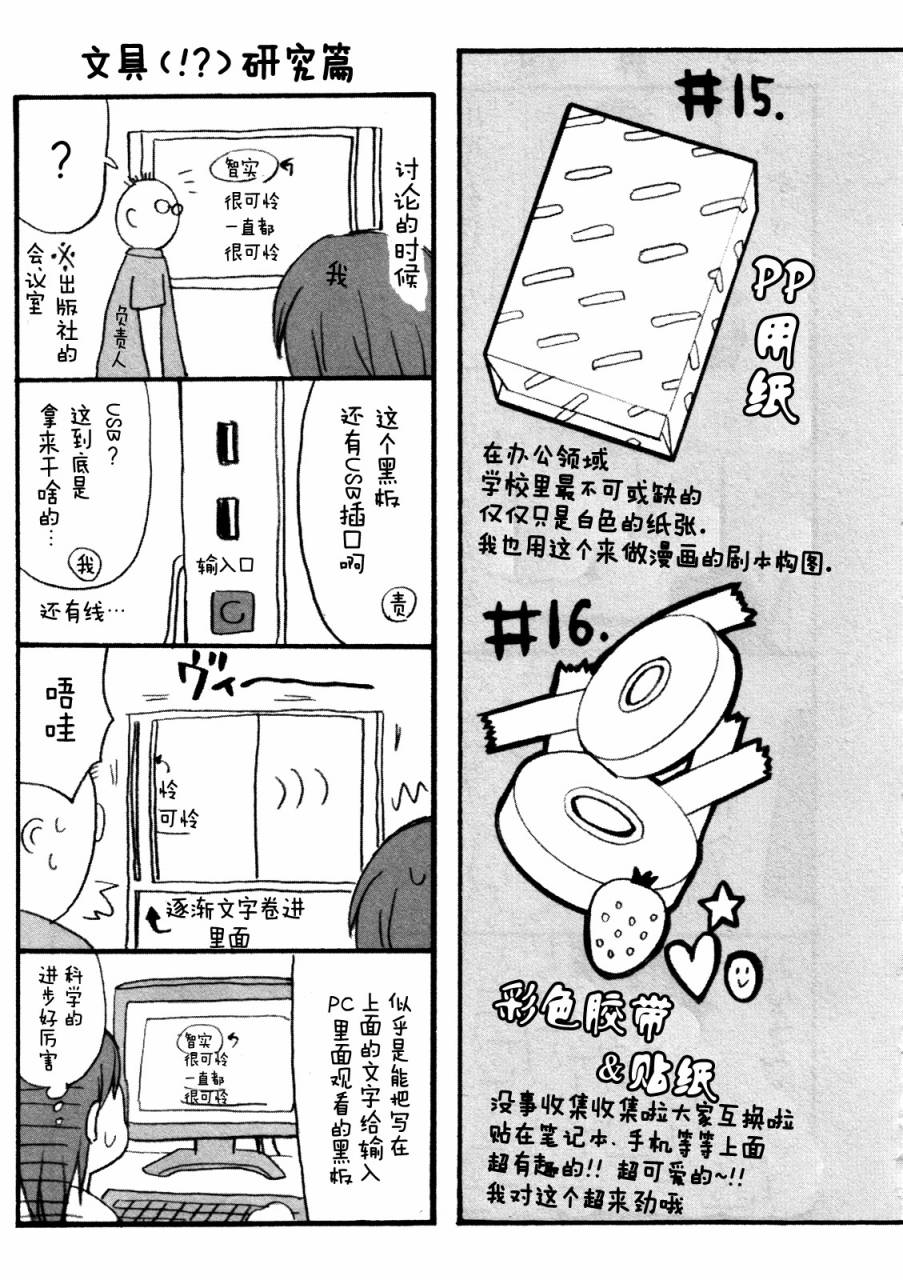 #15.
PP
用
纸
在办公领域
学校里最不可或缺的
仅仅只是白色的纸张.
我也用这个来做漫画的剧本构图.
#16.
彩色胶带
&贴纸
没事收集收集啦大家互换啦
贴在笔记本、手机等等上面
超有趣的!! 超可爱的~!!
我对这个超来劲哦
文具(!?)研究篇
讨论的时候
智实
很可怜
一直都
很可怜
我
?
负责人
※出版社的
会议室
这个黑板
还有USB插口啊
责
输入口
USB?
这到底是
拿来干啥的…
我
还有线…
ヴィー
唔哇
怜
可怜
逐渐文字卷进
里面
似乎是能把写在
上面的文字给输入
PC里面观看的黑板
智实
很可怜
一直都
很可怜
科学的
进步好厉害